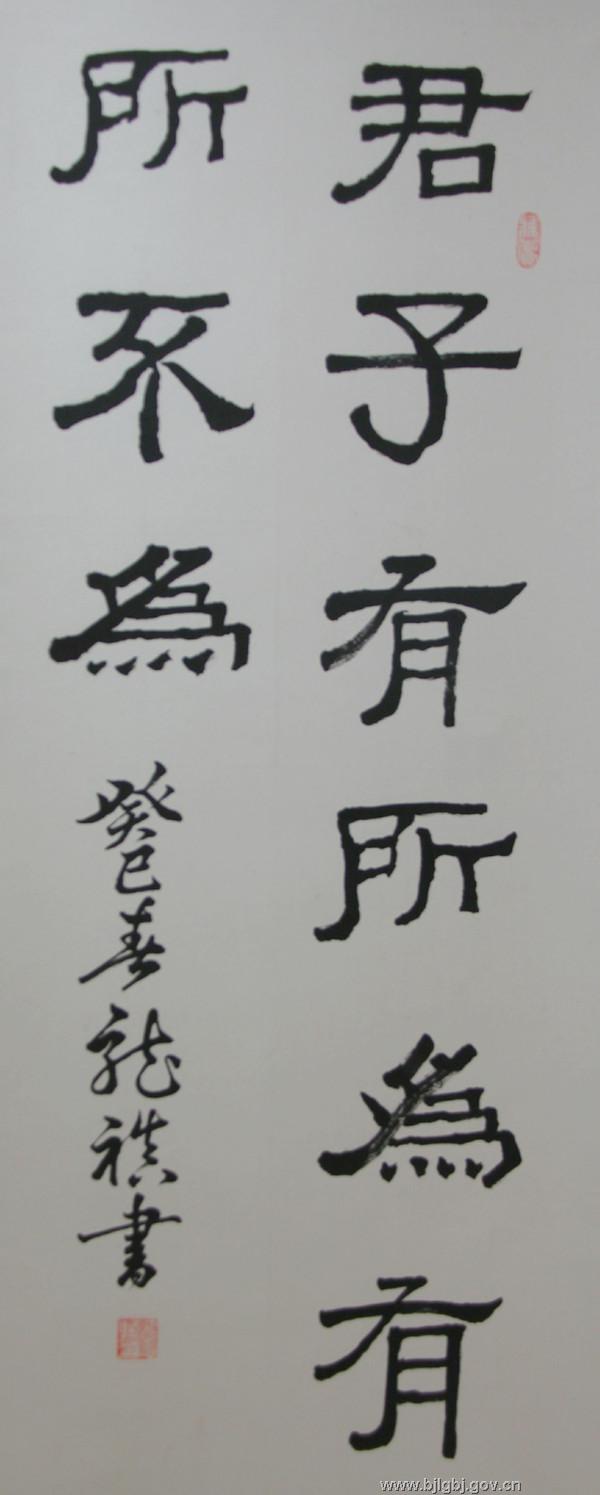 君子有所為有
所不為
癸巳春龍祺書
www.bjlgbj.gov.cn